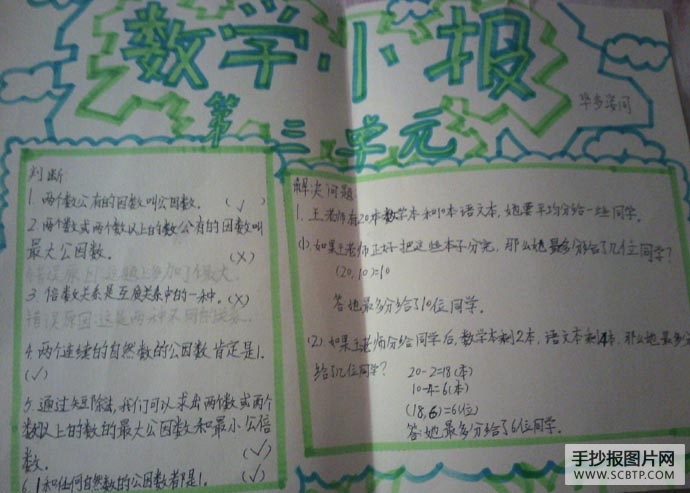 数学小报
第三单元
判断:
1. 两个数公有的因数叫公因数。 (√)
2. 两个数或两个数以上的数公有的因数叫
最大公因数。 (X)
3. 倍数关系是互质关系中的一种。(X)
4. 两个连续的自然数的公因数肯定是1.
(√)
5. 通过短除法,我们可以求出两个数或两个
数以上的数的最大公因数和最小公倍
数。 (√)
6. 1和任何自然数的公因数都是1. (√)
解决问题:
1. 王老师有20本数学本和10本语文本,她要平均分给一些同学。
(1). 如果王老师正好把这些本子分完,那么她最多分给了几位同学?
(20,10)=10
答:她最多分给了10位同学。
(2). 如果王老师分给同学后,数学本剩2本,语文本剩4本,那么她最多分
给了几位同学? 20-2=18(本)
10-4=6(本)
(18,6)=6(位)
答:她最多分给了6位同学。
手抄报图片网
WWW.SCBTP.COM